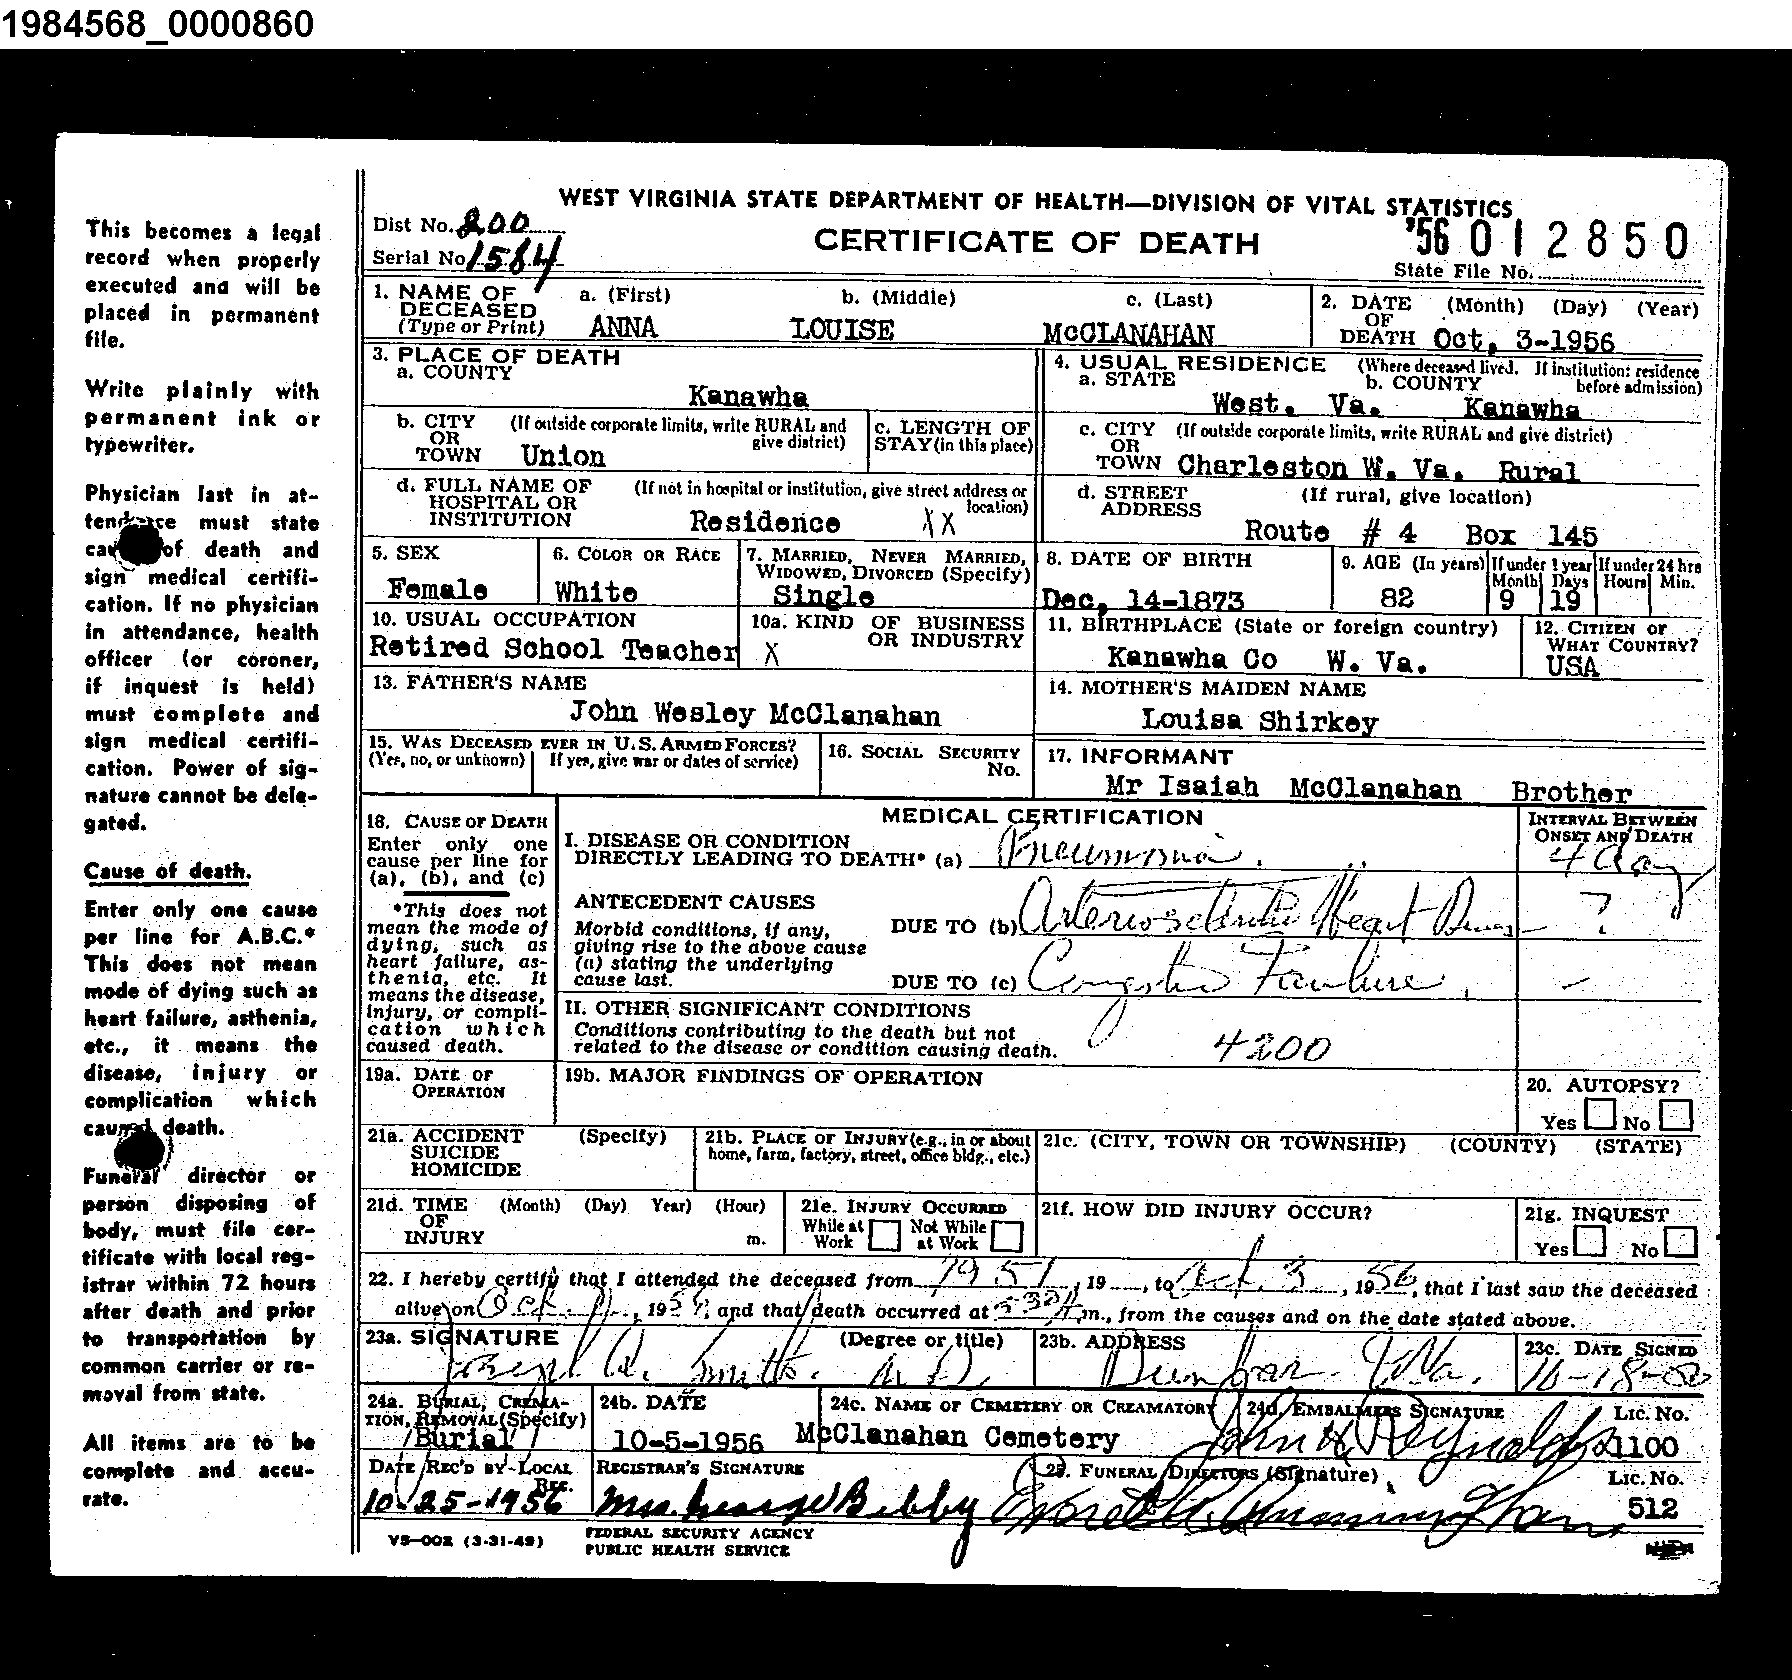 1984568_0000860
WEST VIRGINIA STATE DEPARTMENT OF HEALTH—DIVISION OF VITAL STATISTICS
Dist No. 200
Serial No 1584
CERTIFICATE OF DEATH
'56 012850
State File No.
This becomes a legal
record when properly
executed and will be
placed in permanent
file.
Write plainly with
permanent ink or
typewriter.
Physician last in at-
tendance must state
cause of death and
sign medical certifi-
cation. If no physician
in attendance, health
officer (or coroner,
if inquest is held)
must complete and
sign medical certifi-
cation. Power of sig-
nature cannot be dele-
gated.
Cause of death.
Enter only one cause
per line for A.B.C.*
This does not mean
mode of dying such as
heart failure, asthenia,
etc., it means the
disease, injury or
complication which
caused death.
Funeral director or
person disposing of
body, must file cer-
tificate with local reg-
istrar within 72 hours
after death and prior
to transportation by
common carrier or re-
moval from state.
All items are to be
complete and accu-
rate.
1. NAME OF DECEASED (Type or Print) a. (First) b. (Middle) c. (Last)
ANNA LOUISE McCLANAHAN
2. DATE OF DEATH (Month) (Day) (Year)
Oct, 3-1956
3. PLACE OF DEATH
a. COUNTY
Kanawha
4. USUAL RESIDENCE (Where deceased lived. If institution: residence before admission)
a. STATE b. COUNTY
West. Va. Kanawha
b. CITY OR TOWN (If outside corporate limits, write RURAL and give district)
Union
c. LENGTH OF STAY (in this place)
c. CITY OR TOWN (If outside corporate limits, write RURAL and give district)
Charleston W. Va. Rural
d. FULL NAME OF HOSPITAL OR INSTITUTION (If not in hospital or institution, give street address or location)
Residence XX
d. STREET ADDRESS (If rural, give location)
Route # 4 Box 145
5. SEX
Female
6. COLOR OR RACE
White
7. MARRIED, NEVER MARRIED, WIDOWED, DIVORCED (Specify)
Single
8. DATE OF BIRTH
Dec, 14-1873
9. AGE (In years) If under 1 year If under 24 hrs
Month Days Hours Min.
82 9 19
10. USUAL OCCUPATION
Retired School Teacher
10a. KIND OF BUSINESS OR INDUSTRY
X
11. BIRTHPLACE (State or foreign country)
Kanawha Co W. Va.
12. CITIZEN OF WHAT COUNTRY?
USA
13. FATHER'S NAME
John Wesley McClanahan
14. MOTHER'S MAIDEN NAME
Louisa Shirkey
15. WAS DECEASED EVER IN U.S. ARMED FORCES?
(Yes, no, or unknown) If yes, give war or dates of service)
16. SOCIAL SECURITY No.
17. INFORMANT
Mr Isaiah McClanahan Brother
MEDICAL CERTIFICATION
INTERVAL BETWEEN ONSET AND DEATH
18. CAUSE OF DEATH
Enter only one
cause per line for
(a), (b), and (c)
*This does not
mean the mode of
dying, such as
heart failure, as-
thenia, etc. It
means the disease,
injury, or compli-
cation which
caused death.
I. DISEASE OR CONDITION
DIRECTLY LEADING TO DEATH* (a) Pneumonia. 4 day
ANTECEDENT CAUSES
Morbid conditions, if any,
giving rise to the above cause
(a) stating the underlying
cause last.
DUE TO (b) Arteriosclerotic Heart ?
DUE TO (c) Congestive Failure. –
II. OTHER SIGNIFICANT CONDITIONS
Conditions contributing to the death but not
related to the disease or condition causing death.
4200
19a. DATE OF OPERATION
19b. MAJOR FINDINGS OF OPERATION
20. AUTOPSY?
Yes No
21a. ACCIDENT SUICIDE HOMICIDE (Specify)
21b. PLACE OF INJURY (e.g., in or about home, farm, factory, street, office bldg., etc.)
21c. (CITY, TOWN OR TOWNSHIP) (COUNTY) (STATE)
21d. TIME OF INJURY (Month) (Day) Year) (Hour) m.
21e. INJURY OCCURRED
While at Work Not While at Work
21f. HOW DID INJURY OCCUR?
21g. INQUEST
Yes No
22. I hereby certify that I attended the deceased from 1951, 19 , to Oct. 3, 1956, that I last saw the deceased
alive on Oct. , 19 , and that death occurred at m., from the causes and on the date stated above.
23a. SIGNATURE (Degree or title)
Joseph A. Smith. M.D.
23b. ADDRESS
Dunbar W.Va.
23c. DATE SIGNED
10-18-
24a. BURIAL, CREMA-
TION, REMOVAL (Specify)
Burial
24b. DATE
10-5-1956
24c. NAME OF CEMETERY OR CREAMATORY
McClanahan Cemetery
24d. EMBALMERS SIGNATURE Lic. No.
John H Reynolds 1100
DATE REC'D BY LOCAL REG.
10-25-1956
REGISTRAR'S SIGNATURE
Mrs. George W Bibby
25. FUNERAL DIRECTORS (Signature) Lic. No.
Cunningham 512
VS-002 (3-31-49)
FEDERAL SECURITY AGENCY
PUBLIC HEALTH SERVICE